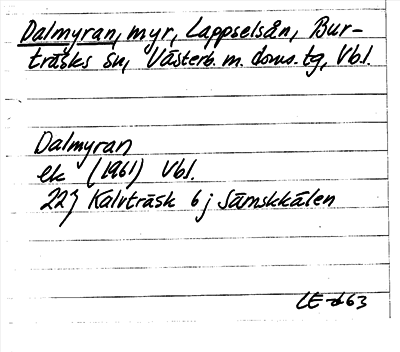 Dalmyran, myr, Lappselsån, Bur-
träsks sn, Västerb. m. doms. tg, Vbl.
Dalmyran
ek (1961) Vbl.
22J Kalvträsk 6j Sämskkälen